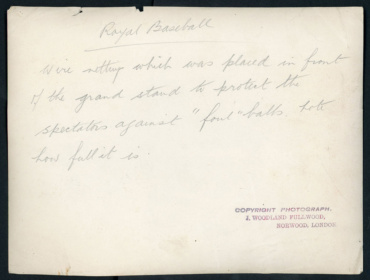 Royal Baseball
Wire netting which was placed in front
of the grand stand to protect the
spectators against "foul" balls. Note
how full it is.
COPYRIGHT PHOTOGRAPH.
J. WOODLAND FULLWOOD,
NORWOOD, LONDON